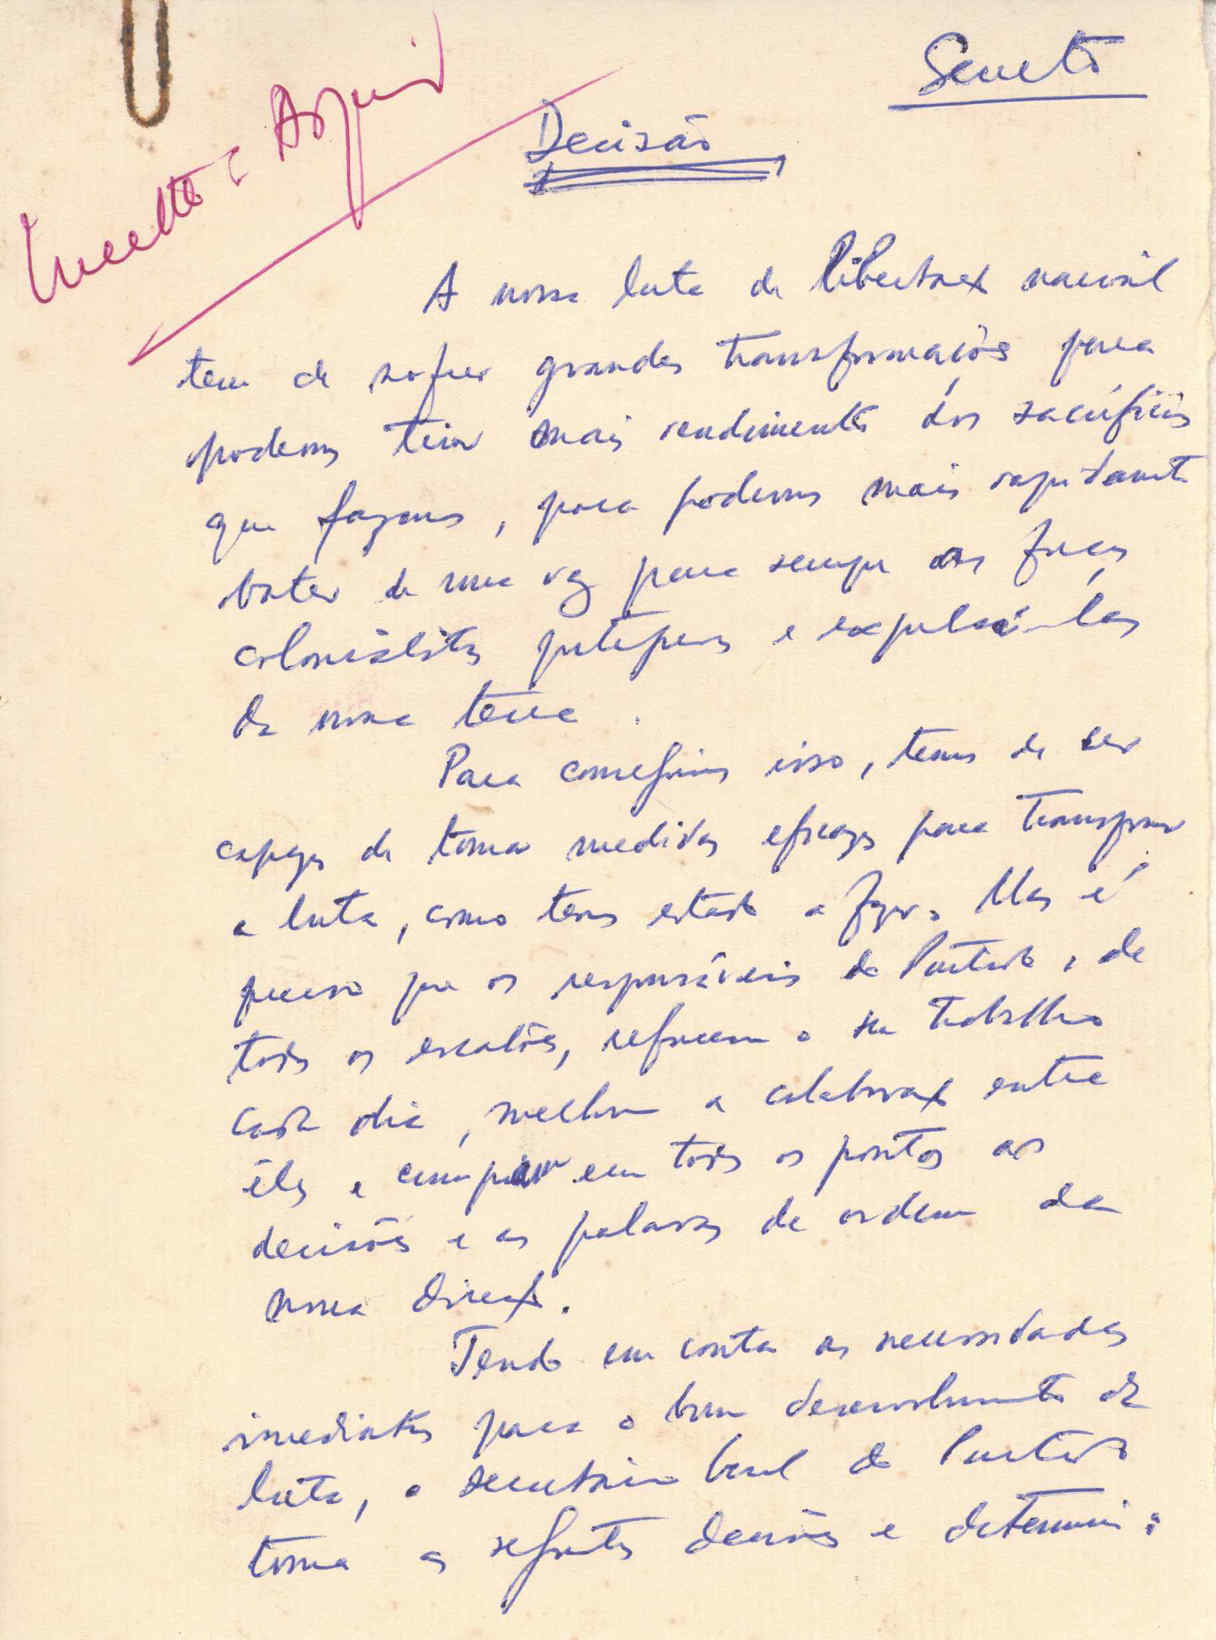 Secreto
Decisão
A nossa luta de libertação nacional
tem de sofrer grandes transformações para
podermos tirar mais rendimento dos sacrifícios
que fazemos, para podermos mais rapidamente
bater de uma vez para sempre as forças
colonialistas portuguesas e expulsá-las
da nossa terra.
Para conseguirmos isso, temos de ser
capazes de tomar medidas eficazes para transformar
a luta, como temos estado a fazer. Mas é
preciso que os responsáveis do Partido, de
todos os escalões, reforcem o seu trabalho
cada dia, melhorem a colaboração entre
êles e cumpram em todos os pontos as
decisões e as palavras de ordem da
nossa direcção.
Tendo em conta as necessidades
imediatas para o bom desenvolvimento da
luta, o secretário Geral do Partido
toma as seguintes decisões e determina: